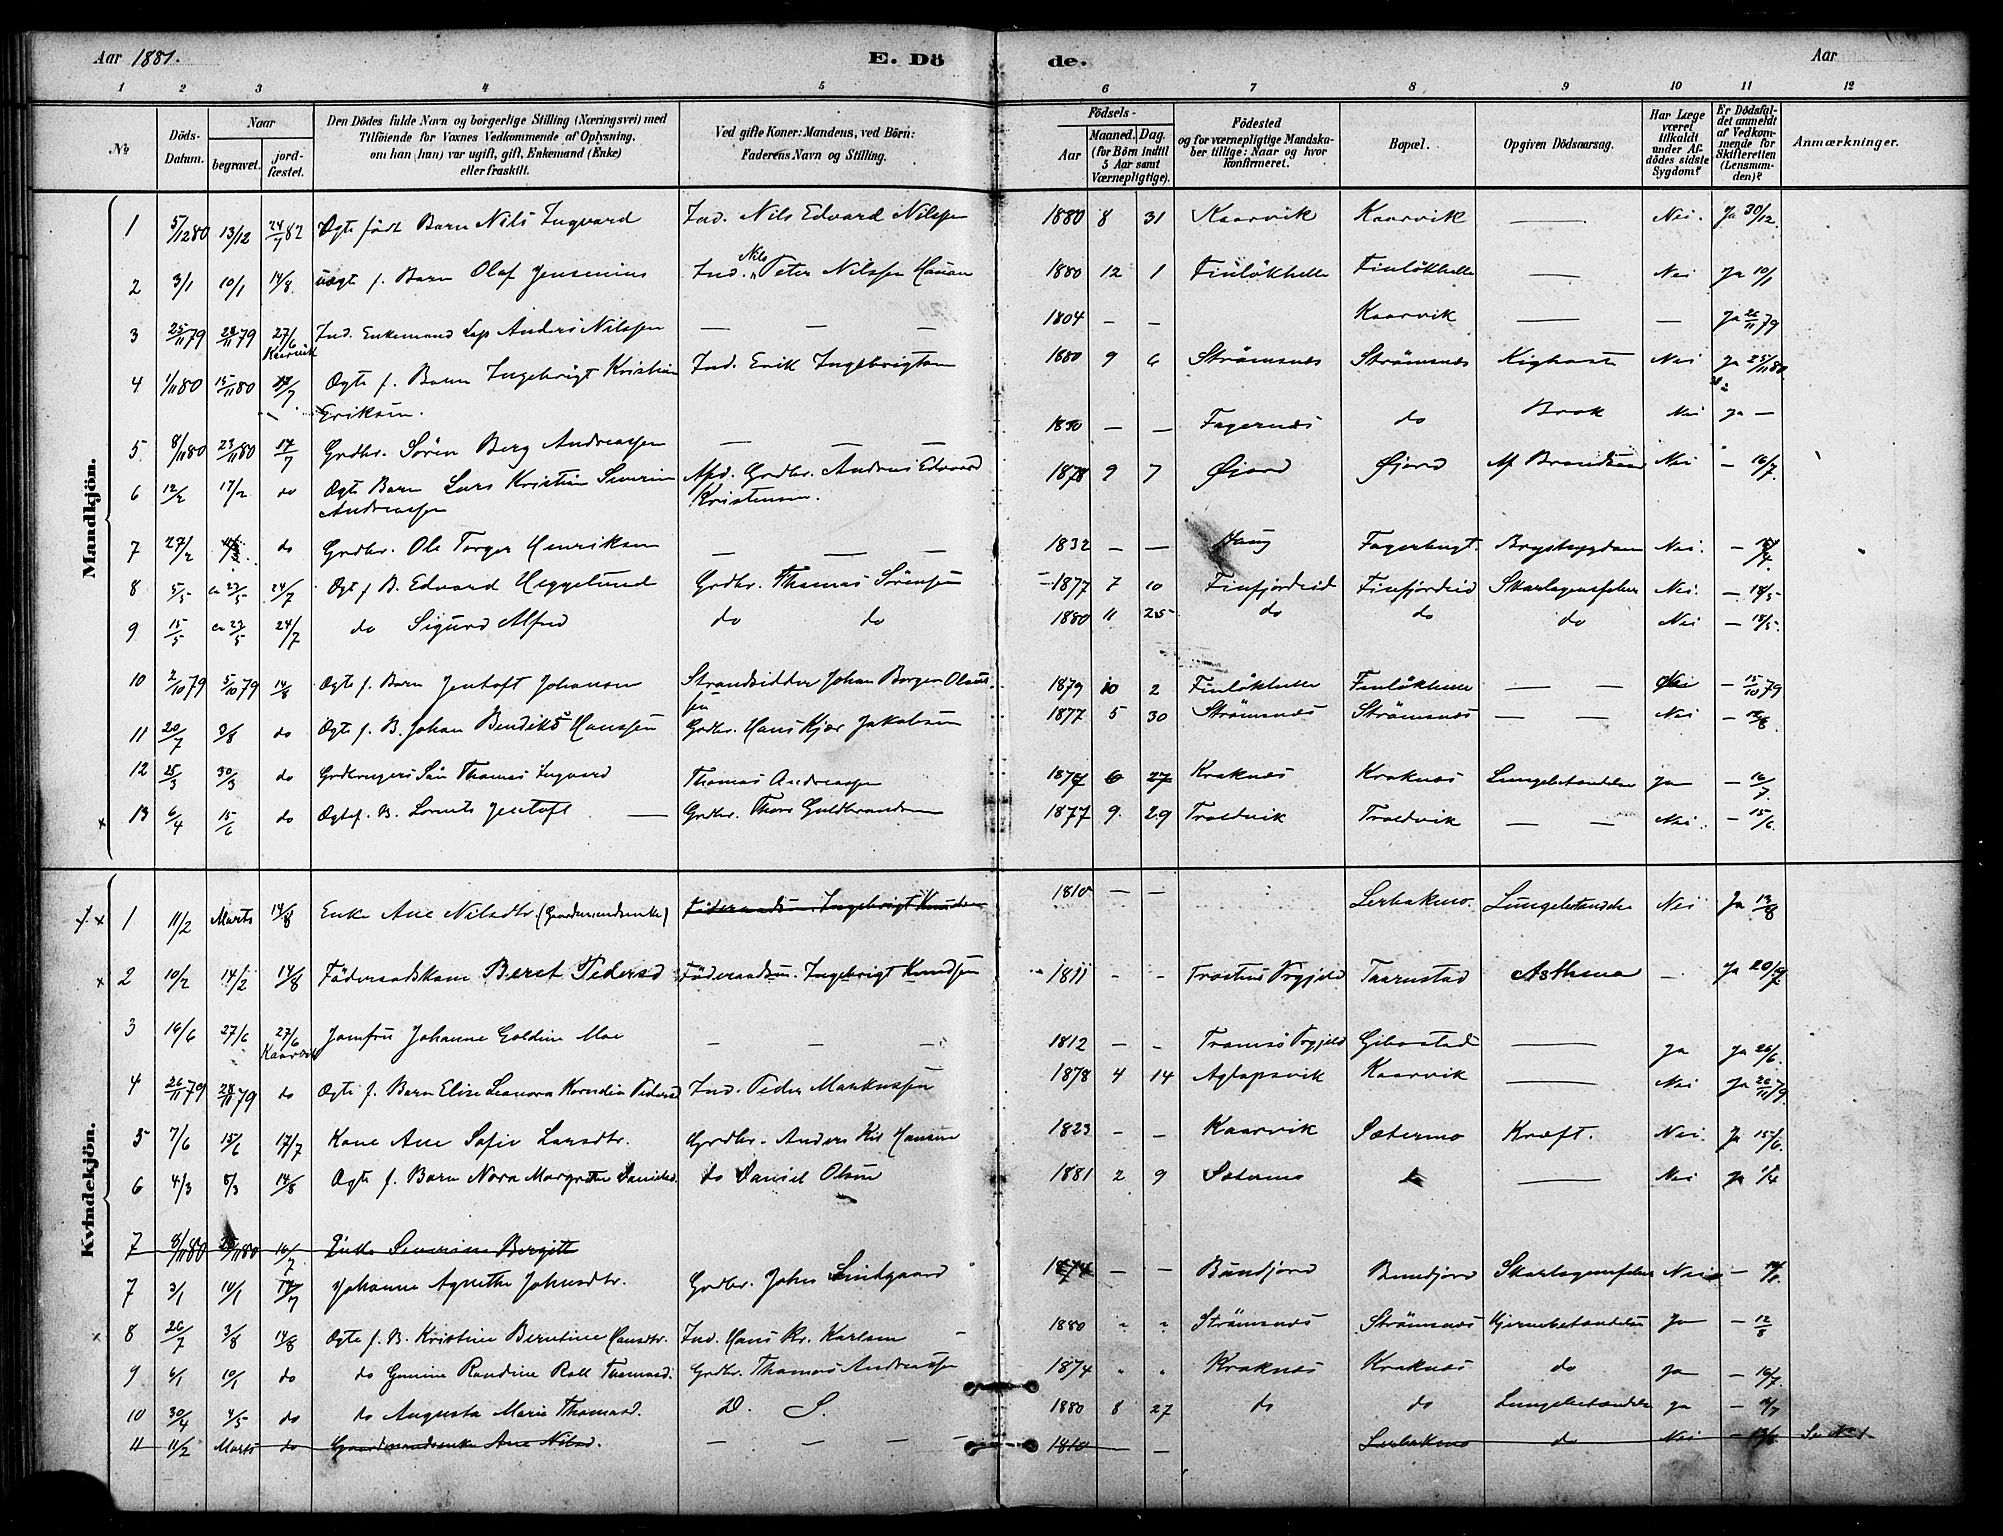 Aar 1881. E. Dö de. Aar
1 2 3 4 5 6 7 8 9 10 11 12
№ Döds-Datum. Naar begravet. jordfæstet. Den Dödes fulde Navn og borgerlige Stilling (Næringsvei) med Tilföiende for Voxnes Vedkommende af Oplysning, om han (hun) var ugift, gift, Enkemand (Enke) eller fraskilt. Ved gifte Koner: Mandens, ved Börn: Faderens Navn og Stilling. Födsels- Aar Maaned. Dag. (for Börn indtil 5 Aar samt Værnepligtige). Födested og for værnepligtige Mandskaber tillige: Naar og hvor konfirmeret. Bopæl. Opgiven Dödsaarsag. Har Læge været tilkaldt under Afdödes sidste Sygdom? Er Dödsfaldet anmeldt af Vedkommende for Skifteretten (Lensmanden)? Anmærkninger.
Mandkjön.
1 5/12 80 13/12 24/7 82 Ægte födt Barn Nils Ingvard Ind. Nils Edvard Nilssen 1880 8 31 Kaarvik Kaarvik — Nei. Ja 30/12.
2 3/1 10/1 14/8 uægte f. Barn Olaf Jensenius Ind. Nils Peter Nilssen Hanan 1880 12 1 Finlökhelle Finlökhelle — Nei Ja 10/1
3 25/11 79 28/11 79 27/6 Kaarvik Ind. Enkemand Lap Anders Nilssen — — — 1804 — — Kaarvik — — Ja 26/11 79
4 1/11 80 15/11 80 17/7 Ægte f. Barn Ingebrigt Kristian Ind. Erik Ingebrigtsen 1880 9 6 Strömsnes Strömsnes Kighoste Nei Ja 25/11 80.
Eriksen.
5 8/11 80 23/11 80 17/7 Grdbr. Sören Berg Andreassen — — — 1850 — — Fagernes do Brok Nei Ja —
6 12/2 17/2 do Ægte Barn Lars Kristian Severin Afd. Grdbr. Andreas Edvard 1878 9 7 Øjord Øjord Af Brandsaar Nei — 16/7.
Andreassen Kristensen.
7 27/2 do Grdbr. Ole Torger Henriksen — — — 1832 — — Haug Fagerbugt. Brystsygdom Nei.
8 5/5 ca 23/5 24/7 Ægt f B. Edvard Heggelund Grdbr. Thomas Sörensen 1877 7 10 Finfjordeid Finfjordeid Skarlagensfeber Nei. — 18/5
9 15/5 ca 23/5 24/7 do Sigurd Alfred do do 1880 11 25 do do do Nei — 18/5.
10 2/10 79 5/10 79 14/8 Ægte f. Barn Jentoft Johansen Strandsidder Johan Borger Olaus- 1879 10 2 Finlökhelle Finlökhelle — — Nei — 15/10 79
sen
11 20/7 3/8 do Ægte f. B. Johan Bendiks Hanssen Grdbr. Hans Kjær Jakobsen 1877 5 30 Strömsnes Strömsnes — — Nei — 12/8.
12 25/3 30/3 do Grdbrugers Sön Thomas Ingvard Thomas Andreassen 1877 6 27 Kraknes Kraknes Lungebetændelse Ja — 16/7.
x 13 6/4 15/6 do Ægte f. B. Lorents Jentoft — Grdbr. Thore Guldbrandsen 1877 9. 29 Troldvik Troldvik — — Nei — 15/6.
Kvindekjön.
x 1 11/2 Marts 14/8 Enke Ane Nilsdtr (Gaardmandsenke) Föderaadsm. Ingebrigt Knudsen 1810 — — Lerbakmo. Lungebetændelse Nei Ja 13/8
x 2 10/2 14/2 14/8 Föderaadskone Beret Pedersd Föderaadsm. Ingebrigt Knudsen 1811 - - Trætens Prgjeld Taarnstad Asthma — Ja 20/7
3 16/6 27/6 27/6 Kaarvik Jomfru Johanne Goldine Moe — — — 1812 — - Tromsö Prgjeld Gibostad — Ja Ja 26/6.
4 26/11 79 28/11 79 do Ægte f. Barn Elise Leonora Korndia Pedersd Ind. Peder Markussen 1878 4 14 Aglapsvik Kaarvik — Nei Ja 26/11 79.
5 7/6 15/6 17/7 Kone Ane Sofie Larsdtr. Grdbr. Anders Kil Hansen 1823 - - Kaarvik Sætermo Kræft. Nei. Ja 15/6.
6 4/3 8/3 14/8 Ægte f. Barn Nora Margrethe Danielsd. do Daniel Olsen 1881 2 9 Sætermo do — Nei Ja 1/4
7 8/11 80 25/11 80 16/7 Enke Severine Bergitte
7 3/1 10/1 17/7 Johanne Agnethe Johnsdtr. Grdbr. Johs Lindgaard 1874 — — Bundjord Bundjord Skarlagensfeber Nei —
x 8 26/7 3/8 14/8 Ægte f. B. Kristine Berntine Hansdtr. Ind. Hans Kr. Karlsen 1880 " " Strömsnes Strömsnes Hjernebetændelse Ja — 12/8
9 6/1 10/1 do do Gunine Randine Roll Thomasd. Grdbr. Thomas Andreassen 1874 " " Kraknes Kraknes do Ja — 16/7.
10 30/4 4/5 do do Augusta Marie Thomasd. D. S. 1880 8 27 do do Lungebetændelse Ja — 16/7
11 11/2 Marts do Gaardmandsenke Ane Nilsd. — — — — 1810 — Lerbakmo do Nei — 13/8 Se No 1